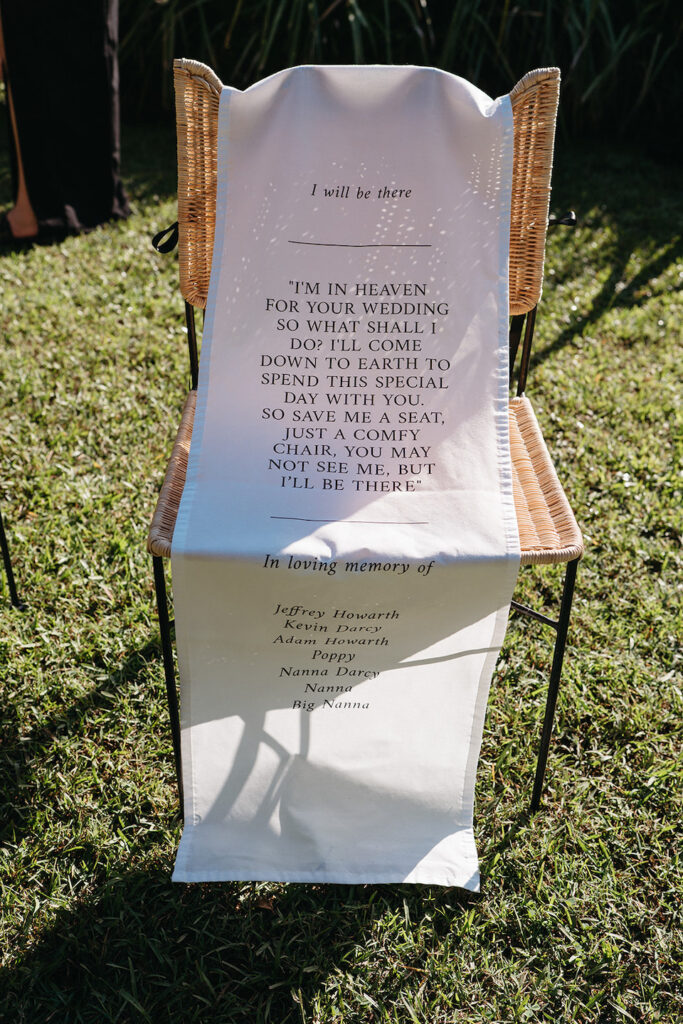 I will be there
"I'M IN HEAVEN
FOR YOUR WEDDING
SO WHAT SHALL I
DO? I'LL COME
DOWN TO EARTH TO
SPEND THIS SPECIAL
DAY WITH YOU.
SO SAVE ME A SEAT,
JUST A COMFY
CHAIR, YOU MAY
NOT SEE ME, BUT
I'LL BE THERE"
In loving memory of
Jeffrey Howarth
Kevin Darcy
Adam Howarth
Poppy
Nanna Darcy
Nanna
Big Nanna